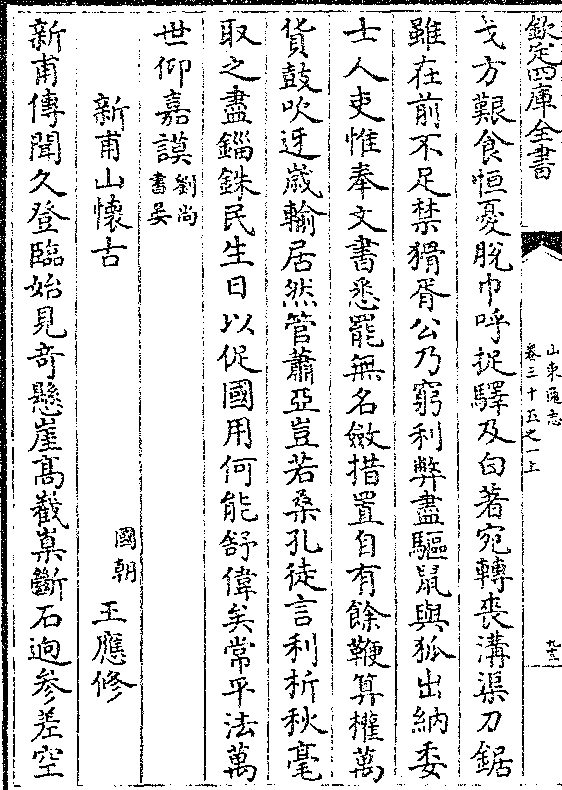 欽定四庫全書
山東通志
卷三十五之一上
九十三
戈方艱食恒憂脫巾呼捉驛及白著宛轉喪溝渠刀鋸
雖在前不足禁猾胥公乃窮利弊盡驅鼠與狐出納委
士人吏惟奉文書悉罷無名斂措置自有餘鞭算權萬
貨鼓吹迓歲輸居然管蕭亞豈若桑孔徒言利析秋毫
取之盡錙銖民生日以促國用何能舒偉矣常平法萬
世仰嘉謨劉尚書晏
新甫山懷古
國朝 王應修
新甫傳聞久登臨始見奇懸崖高截嶪斷石逈參差空